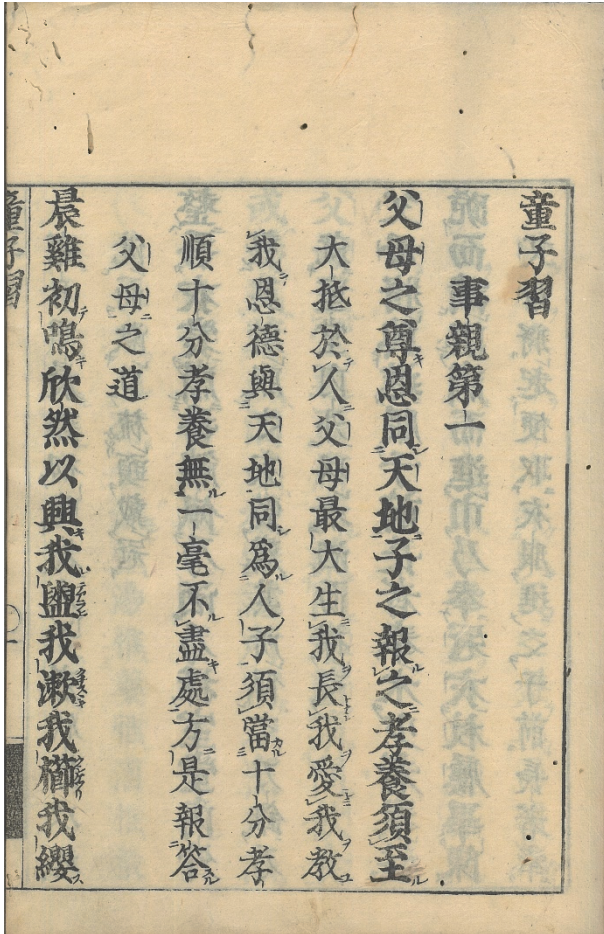 童子習
事親第一
父母之尊恩同天地子之報之孝養須至
大抵於人父母最大生我長我愛我教
我恩德與天地同為人子須當十分孝
順十分孝養無一毫不盡處方是報答
父母之道
晨雞初鳴欣然以興我盥我漱我櫛我纓
童子習